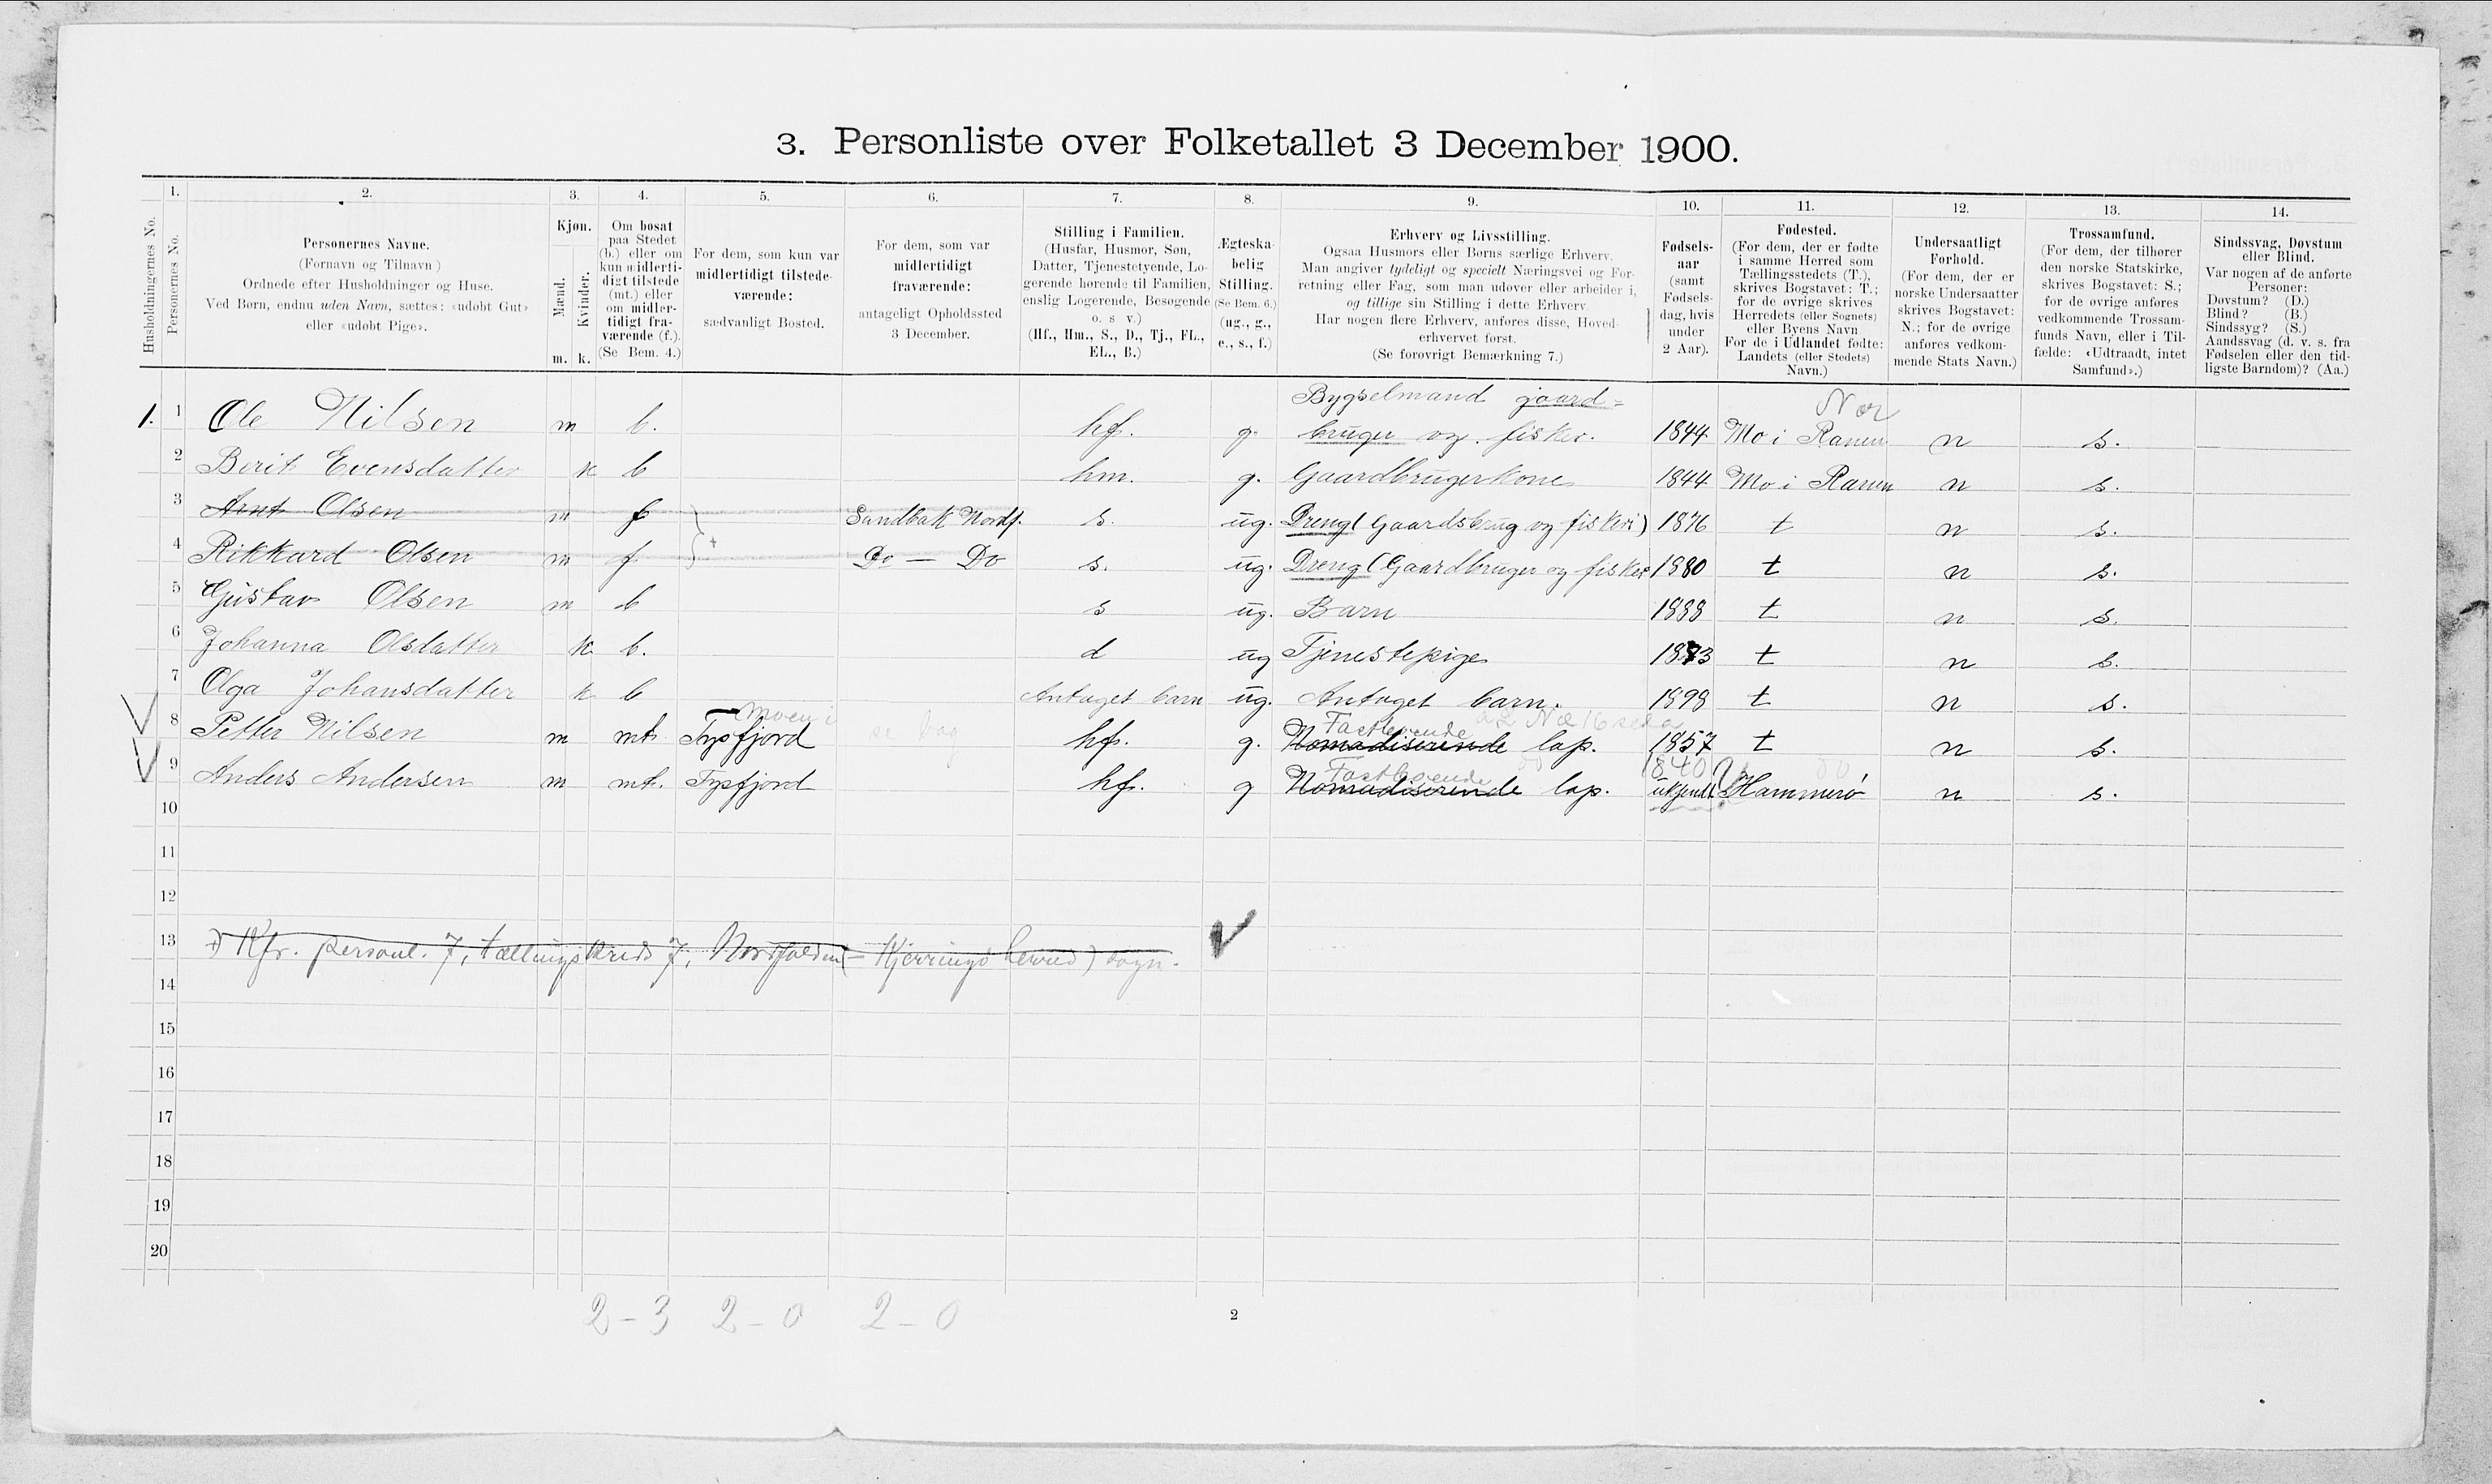 3. Personliste over Folketallet 3 December 1900.
1. 2. 3. 4. 5. 6. 7. 8. 9. 10. 11. 12. 13. 14.
Husholdningernes No.
Personernes No.
Personernes Navne.
(Fornavn og Tilnavn)
Ordnede efter Husholdninger og Huse.
Ved Børn, endnu uden Navn, sættes: «udøbt Gut»
eller «udøbt Pige».
Kjøn.
Mænd.
Kvinder.
m. k.
Om bosat
paa Stedet
(b.) eller om
kun midlerti-
digt tilstede
(mt.) eller
om midler-
tidigt fra-
værende (f.).
(Se Bem. 4.)
For dem, som kun var
midlertidigt tilstede-
værende:
sædvanligt Bosted.
For dem, som var
midlertidigt
fraværende:
antageligt Opholdssted
3 December.
Stilling i Familien.
(Husfar, Husmor, Søn,
Datter, Tjenestetyende, Lo-
gerende hørende til Familien,
enslig Logerende, Besøgende
o. s. v.)
(Hf., Hm., S., D., Tj., FL.,
EL., B.)
Ægteska-
belig
Stilling.
(Se Bem. 6.)
(ug., g.,
e., s., f.)
Erhverv og Livsstilling.
Ogsaa Husmors eller Børns særlige Erhverv.
Man angiver tydeligt og specielt Næringsvei og For-
retning eller Fag, som man udøver eller arbeider i,
og tillige sin Stilling i dette Erhverv.
Har nogen flere Erhverv, anføres disse, Hoved-
erhvervet først.
(Se forøvrigt Bemærkning 7.)
Fødsels-
aar
(samt
Fødsels-
dag, hvis
under
2 Aar).
Fødested.
(For dem, der er fødte
i samme Herred som
Tællingsstedets (T.),
skrives Bogstavet: T.;
for de øvrige skrives
Herredets (eller Sognets)
eller Byens Navn
For de i Udlandet fødte:
Landets (eller Stedets)
Navn.)
Undersaatligt
Forhold.
(For dem, der er
norske Undersaatter
skrives Bogstavet:
N.; for de øvrige
anføres vedkom-
mende Stats Navn.)
Trossamfund.
(For dem, der tilhører
den norske Statskirke,
skrives Bogstavet: S.;
for de øvrige anføres
vedkommende Trossam-
funds Navn, eller i Til-
fælde: «Udtraadt, intet
Samfund».)
Sindssvag, Døvstum
eller Blind.
Var nogen af de anførte
Personer:
Døvstum? (D.)
Blind? (B.)
Sindssyg? (S.)
Aandssvag (d. v. s. fra
Fødselen eller den tid-
ligste Barndom)? (Aa.)
Bygselmand gaard=
Nor
1. 1 Ole Nilsen m b. hf. g. bruger og fisker. 1844 Mo i Ranen n s.
2 Berit Evensdatter k b hm. g. Gaardbrugerkone 1844 Mo i Ranen n s.
3 Arnt Olsen m f Sandbak Nordf. s. ug. Dreng (Gaardsbrug og fiskeri) 1876 t n s.
4 Rikkard Olsen m f + Do — Do s. ug. Dreng (Gaardbruger og fisker 1880 t n s.
5 Gustav Olsen m b s ug. Barn 1888 t n s.
6 Johanna Olsdatter k b. d ug Tjenestepige 1873 t n s.
7 Olga Johansdatter k b Antaget barn ug. Antaget barn. 1898 t n s.
Moen i
Fastboende
8 Petter Nilsen m mt. Tysfjord hf. g. Nomadiserende lap. 1857 t n s.
Fastboende 1840
9 Anders Andersen m mt. Tysfjord hf. g Nomadiserende lap. ukjendt Hammerø n s.
10
11
12
13 +) Kfr. personl. 7, tællingskreds 7, Nordfolden (= Kjerringø herred) sogn.
14
15
16
17
18
19
20
2 - 3 2 - 0 2 - 0
2